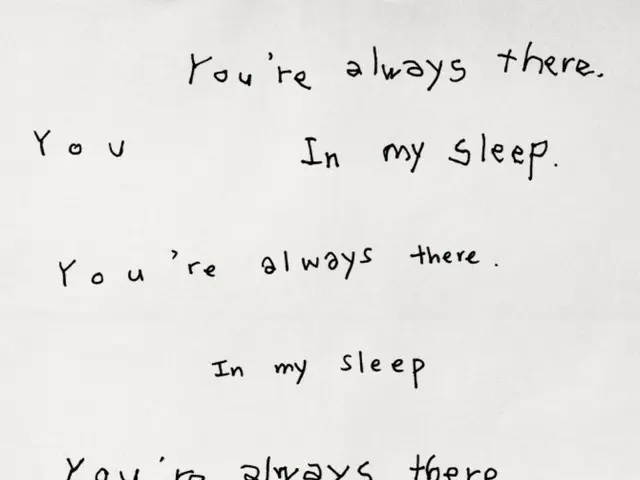 You're always there.
You In my sleep.
You're always there.
In my sleep
You're always there